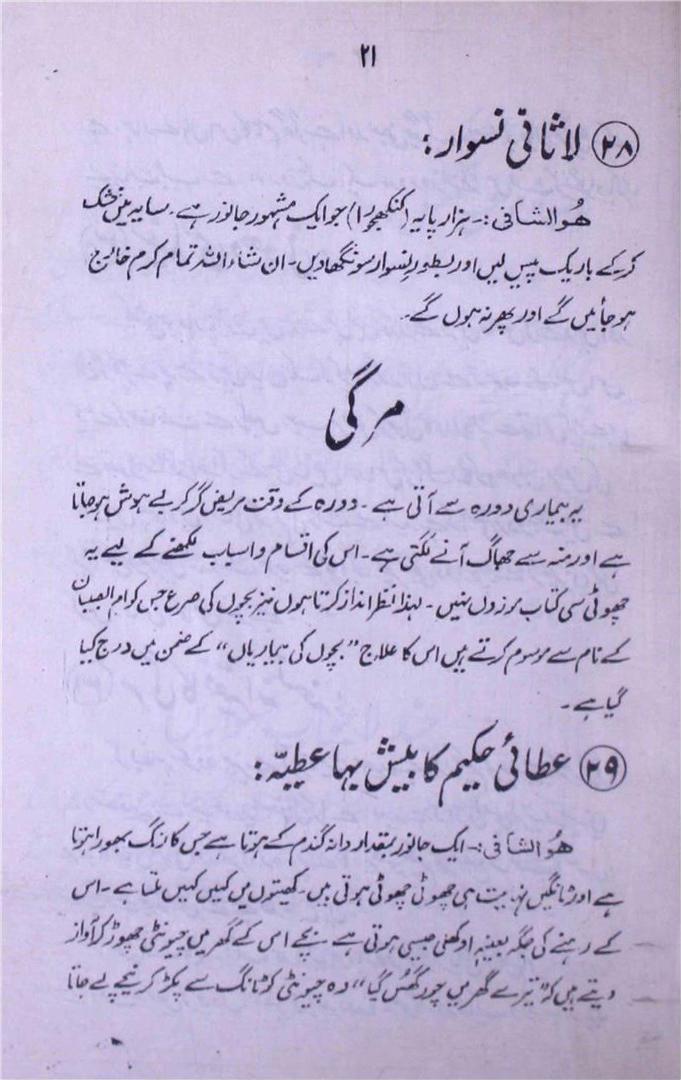 ۲۱
۲۸ لاثانی نسوار:
ھُوالشافی:- ہزار پایہ (کنکھجورا) جو ایک مشہور جانور ہے۔ سایہ میں خشک
کرکے باریک پیس لیں اور بطور نسوار سونگھادیں۔ ان شاء اللہ تمام کرم خارج
ہو جائیں گے اور پھر نہ ہوں گے۔
مرگی
یہ بیماری دورہ سے آتی ہے۔ دورہ کے وقت مریض گر کر بے ہوش ہو جاتا
ہے اور منہ سے جھاگ آنے لگتی ہے۔ اس کی اقسام و اسباب لکھنے کے لیے یہ
چھوٹی سی کتاب موزوں نہیں۔ لہذا نظر انداز کرتا ہوں نیز بچوں کی صرع جس کو ام الصبیان
کے نام سے موسوم کرتے ہیں اس کا علاج "بچوں کی بیماریاں" کے ضمن میں درج کیا
گیا ہے۔
۲۹ عطائی حکیم کا بیش بہا عطیہ:
ھُوالشافی:- ایک جانور بقدار دانہ گندم کے ہوتا ہے جس کا رنگ بھورا ہوتا
ہے اور ٹانگیں نہایت ہی چھوٹی چھوٹی ہوتی ہیں۔ کھیتوں میں کہیں کہیں ملتا ہے۔ اس
کے رہنے کی جگہ بعینہٖ اوکھلی جیسی ہوتی ہے۔ بچے اس کے گھر میں چیونٹی چھوڑ کر آواز
دیتے ہیں کہ "تیرے گھر میں چور گھُس گیا" وہ چیونٹی کو ٹانگ سے پکڑ کر نیچے لے جاتا